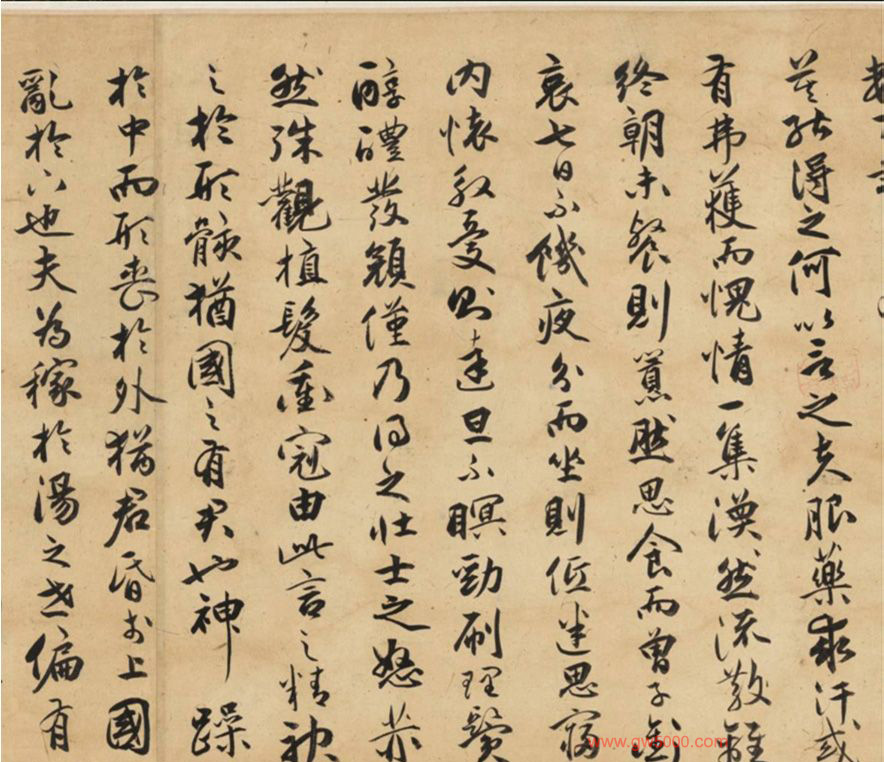 莫能得之何以言之夫服藥求汗或
有弗獲而愧情一集渙然流散離
終朝未餐則囂然思食而曾子銜
哀七日不饑夜分而坐則低迷思寢
內懷殷憂則達旦不瞑勁刷理鬢
醇醴發顏僅乃得之壯士之怒赫
然殊觀植髮衝冠由此言之精神
之於形骸猶國之有君也神躁
於中而形喪於外猶君昏於上國
亂於下也夫為稼於湯之世偏有
www.gw5000.com